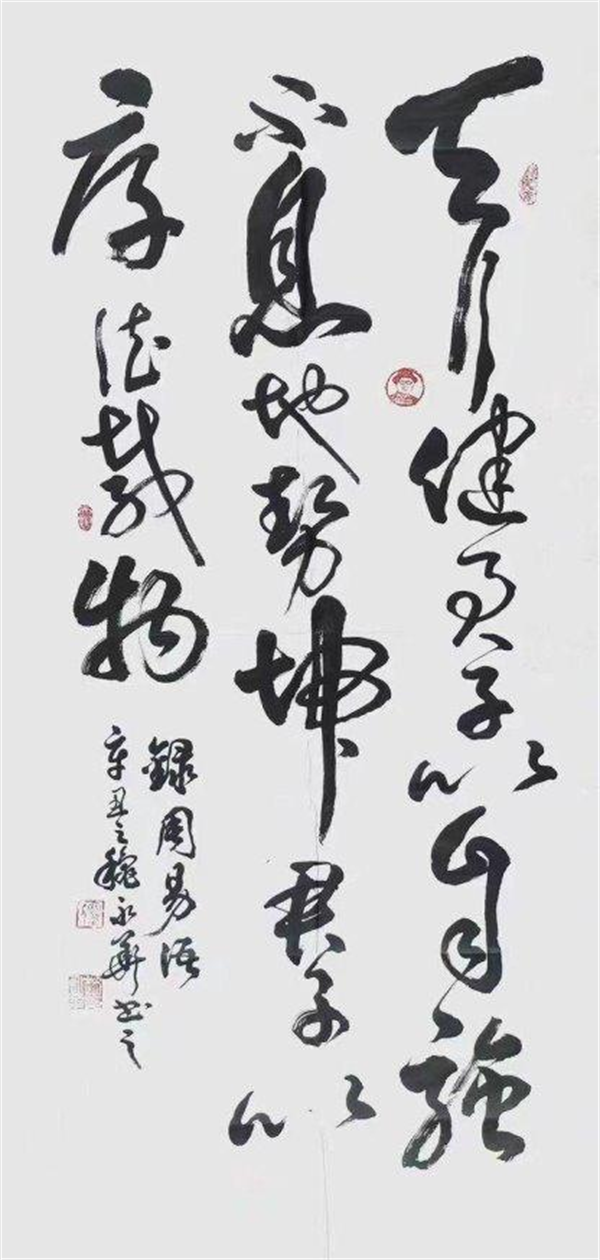 天行健君子以自強
不息地勢坤君子以
厚德載物
録周易語
辛丑之魏永華书之